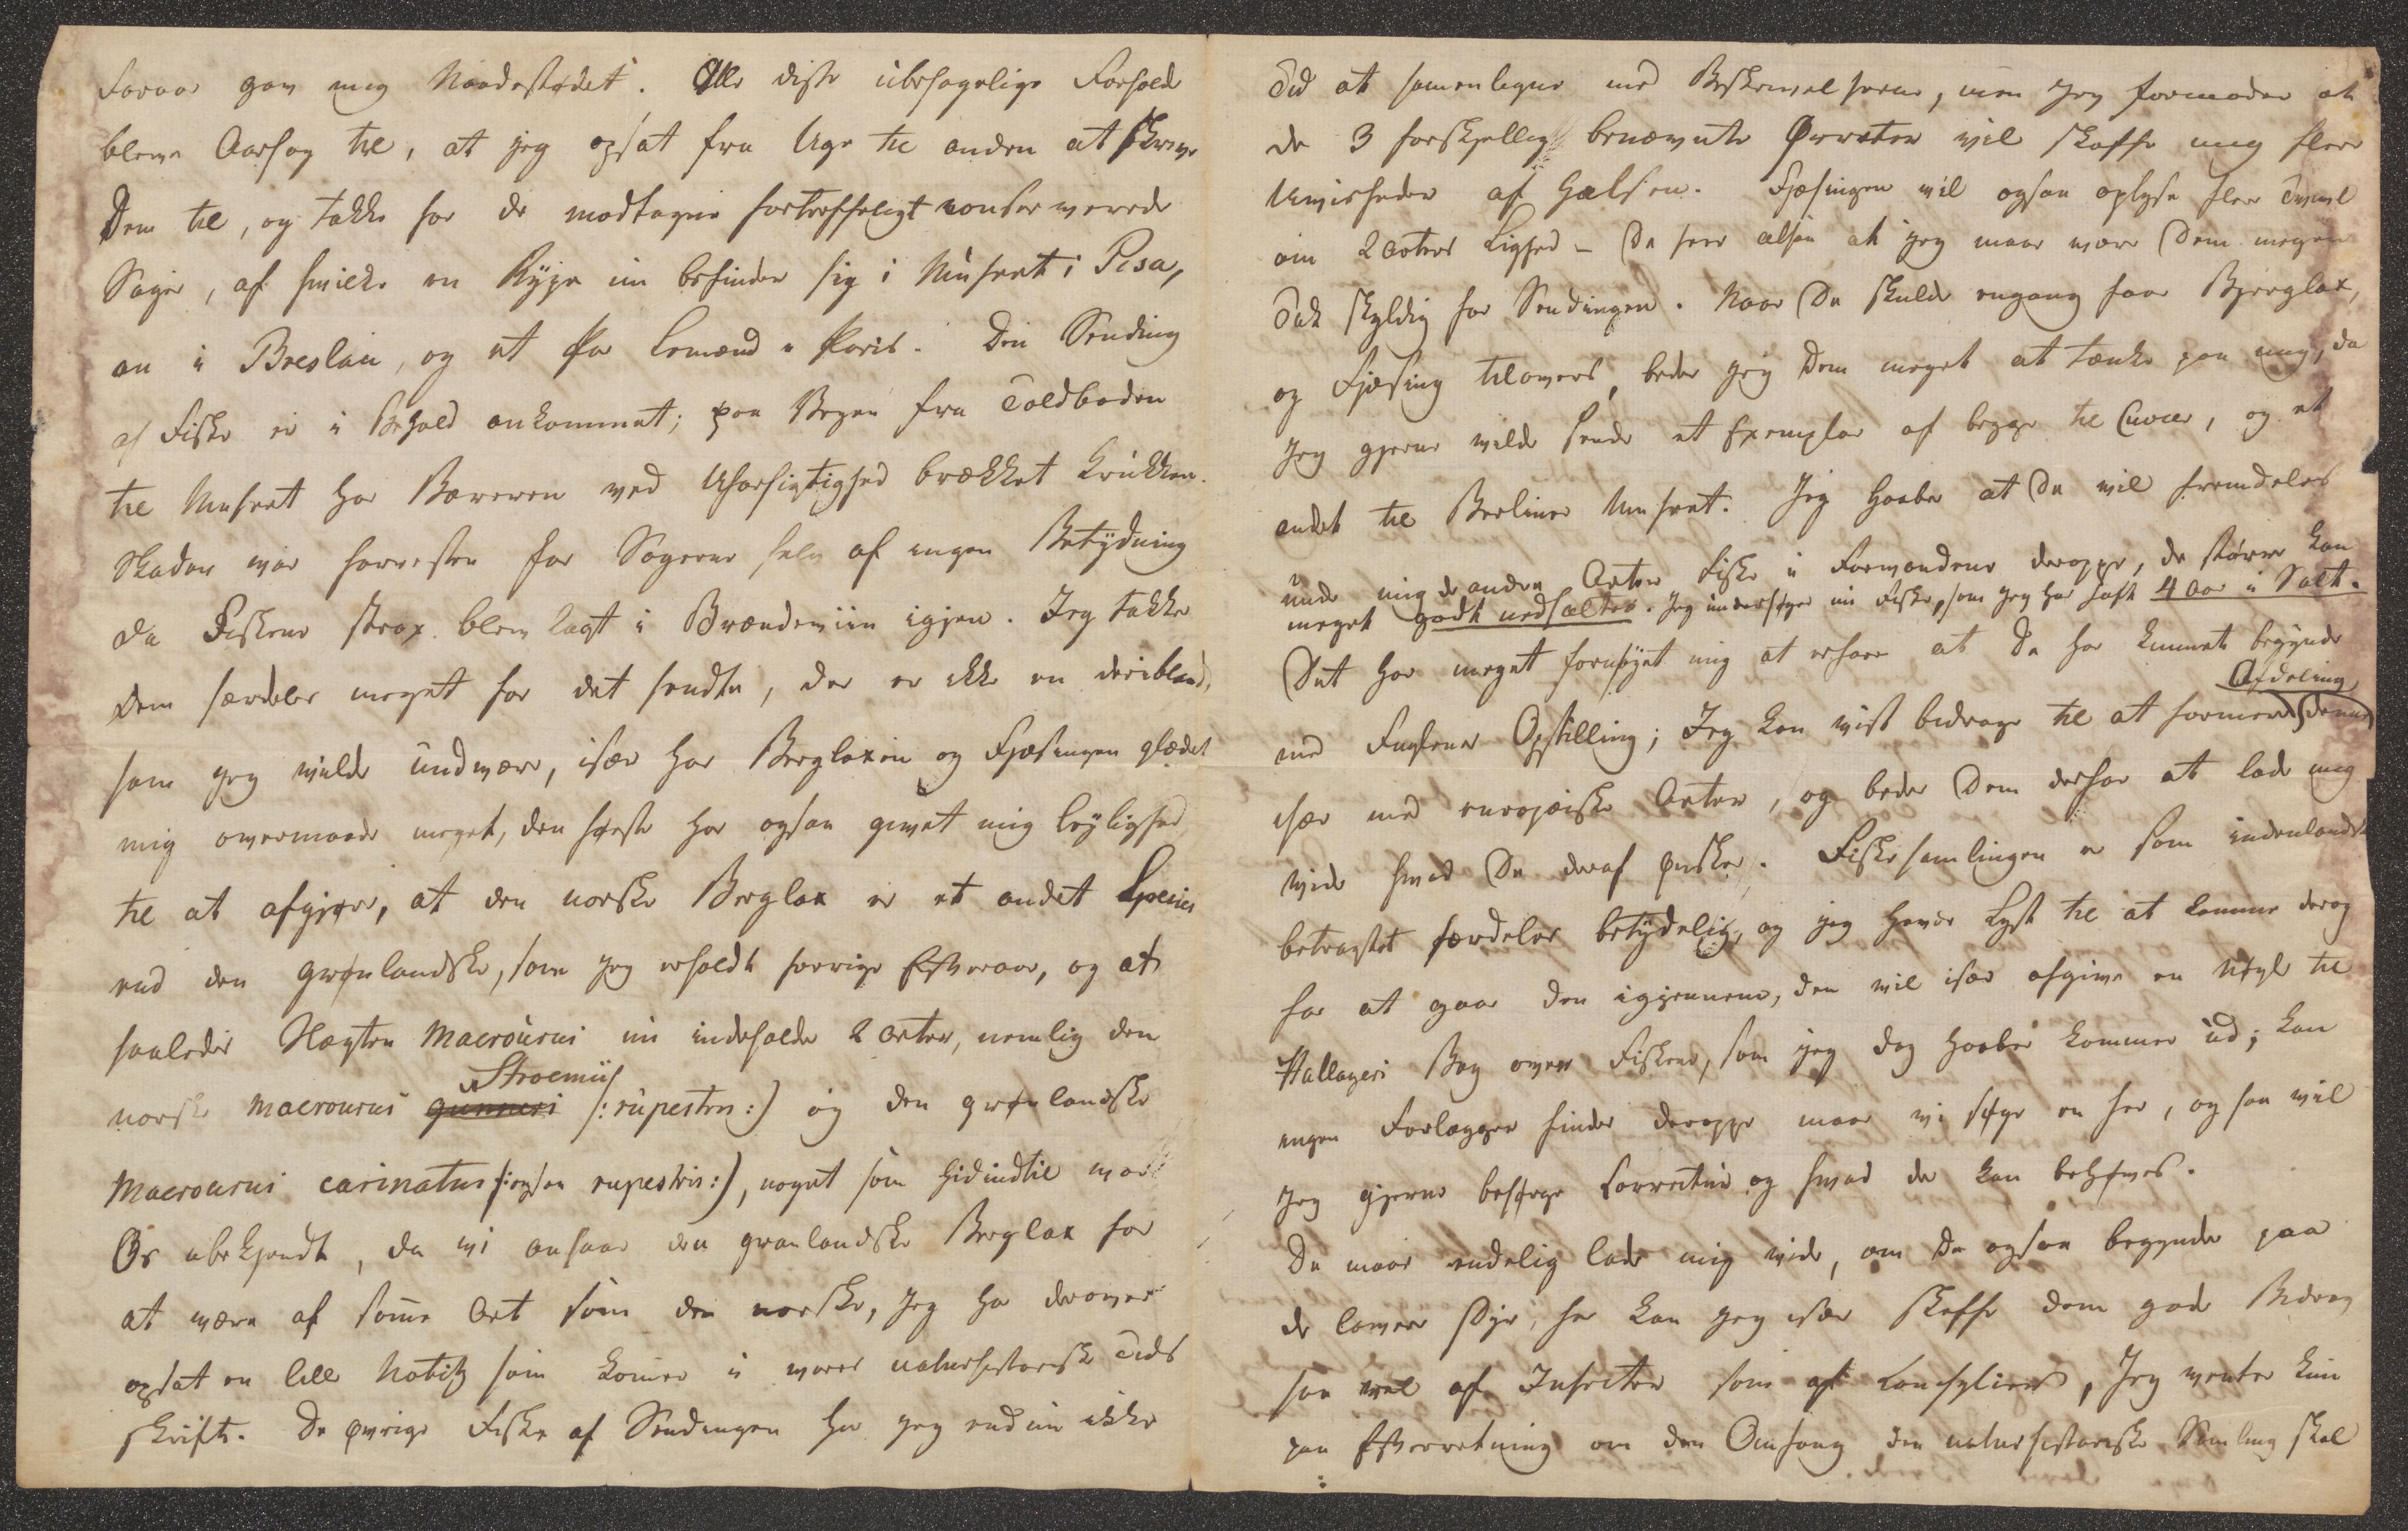 Foraar gav mig Naadestødet. Alle disse ubehagelige Forhold
bleve Aarsag til, at jeg opsat fra Uge til anden at skrive
Dem til, og takke for de modtagne fortreffeligt conserverede
Sager, af hvilke en Rype nu befinder sig i Museet i Pisa,
en i Breslau, og et Par Lemænd i Paris. Din Sending
af Fiske er i Behold ankommet; paa Vegen fra Toldboden
til Museet har Bæreren ved Uforsigtighed brækket Krukken.
Skaden var forresten for Sagerne selv af ingen Betydning
da Fiskene strax blev lagt i Brændeviin igjen. Jeg takker
Dem særdeles meget for det sendte, der er ikke en deriblandt,
som jeg vilde undvære, især har Berglaxen og Fjæsingen glædet
mig overmaade meget, den første har ogsaa givet mig Leylighed
til at afgjøre, at den norske Berglax er et andet Species
end den grønlandske, som jeg erholdt forrige Efteraar, og at
saaledes Slægten Macrourus nu indeholder 2 Arter, nemlig den
Stroemii
norske Macrourus gunneri /: rupestris :/ og den grønlandske
Macrourus carinatus /: ogsaa rupestris :/, noget som hidindtil var
Os ubekjendt, da vi ansaae den grønlandske Berglax for
at være af samme Art som den norske, jeg har derover
opsat en lille Notitz som kommer i vores naturhistoriske Tids
skrift. De øvrige Fiske af Sendingen har jeg endnu ikke
Tid at sammenligne med Beskrivelserne, men jeg formoder at
de 3 forskjellig benævnte Ørreter vil skaffe mig flere
Uvisheder af Halsen. Fjæsingen vil ogsaa oplyse flere Tvivl
om 2 Arters Lighed – De seer altsaa at jeg maae være Dem megen
Tak skyldig for Sendingen. Naar De skulde engang faae Bjerglax,
og Fjæsing tilovers, beder jeg Dem meget at tænke paa mig, da
jeg gjerne vilde sende et Exemplar af begge til Cuvier, og et
andet til Berliner Museet. Jeg haaber at De vil fremdeles
unde mig de andre Arter Fiske i Formandene deroppe, de større kan
meget godt nedsaltes. Jeg undersøger nu Fiske, som jeg har havt 4 Aar i Salt.
Det har meget fornøyet mig at erfare at De har kunnet begynde
Afdeling
med Fuglenes Opstilling; Jeg kan vist bidrage til at formere denne
især med europæiske Arter, og beder Dem derfor at lade mig
vide hvad De deraf ønsker. Fiskesamlingen er som indenlandsk
betragtet særdeles betydelig, og jeg havde Lyst til at komme derop
for at gaae den igjennem, den vil især afgive en Nøgle til
Hallageri Bog over Fiskene, som jeg dog haaber kommer ud; kan
ingen Forlægger findes deroppe maae vi søge en her, og saa vil
jeg gjerne besørge Correctur og hvad der kan behøves.
De maae endelig lade mig vide, om De ogsaa begynder paa
de lavere Dyr, her kan jeg især skaffe Dem gode Bidrag
saa vel af Insecter som af Conchylier, Jeg venter kun
paa Efterretning om den Omfang den naturhistoriske Samling skal